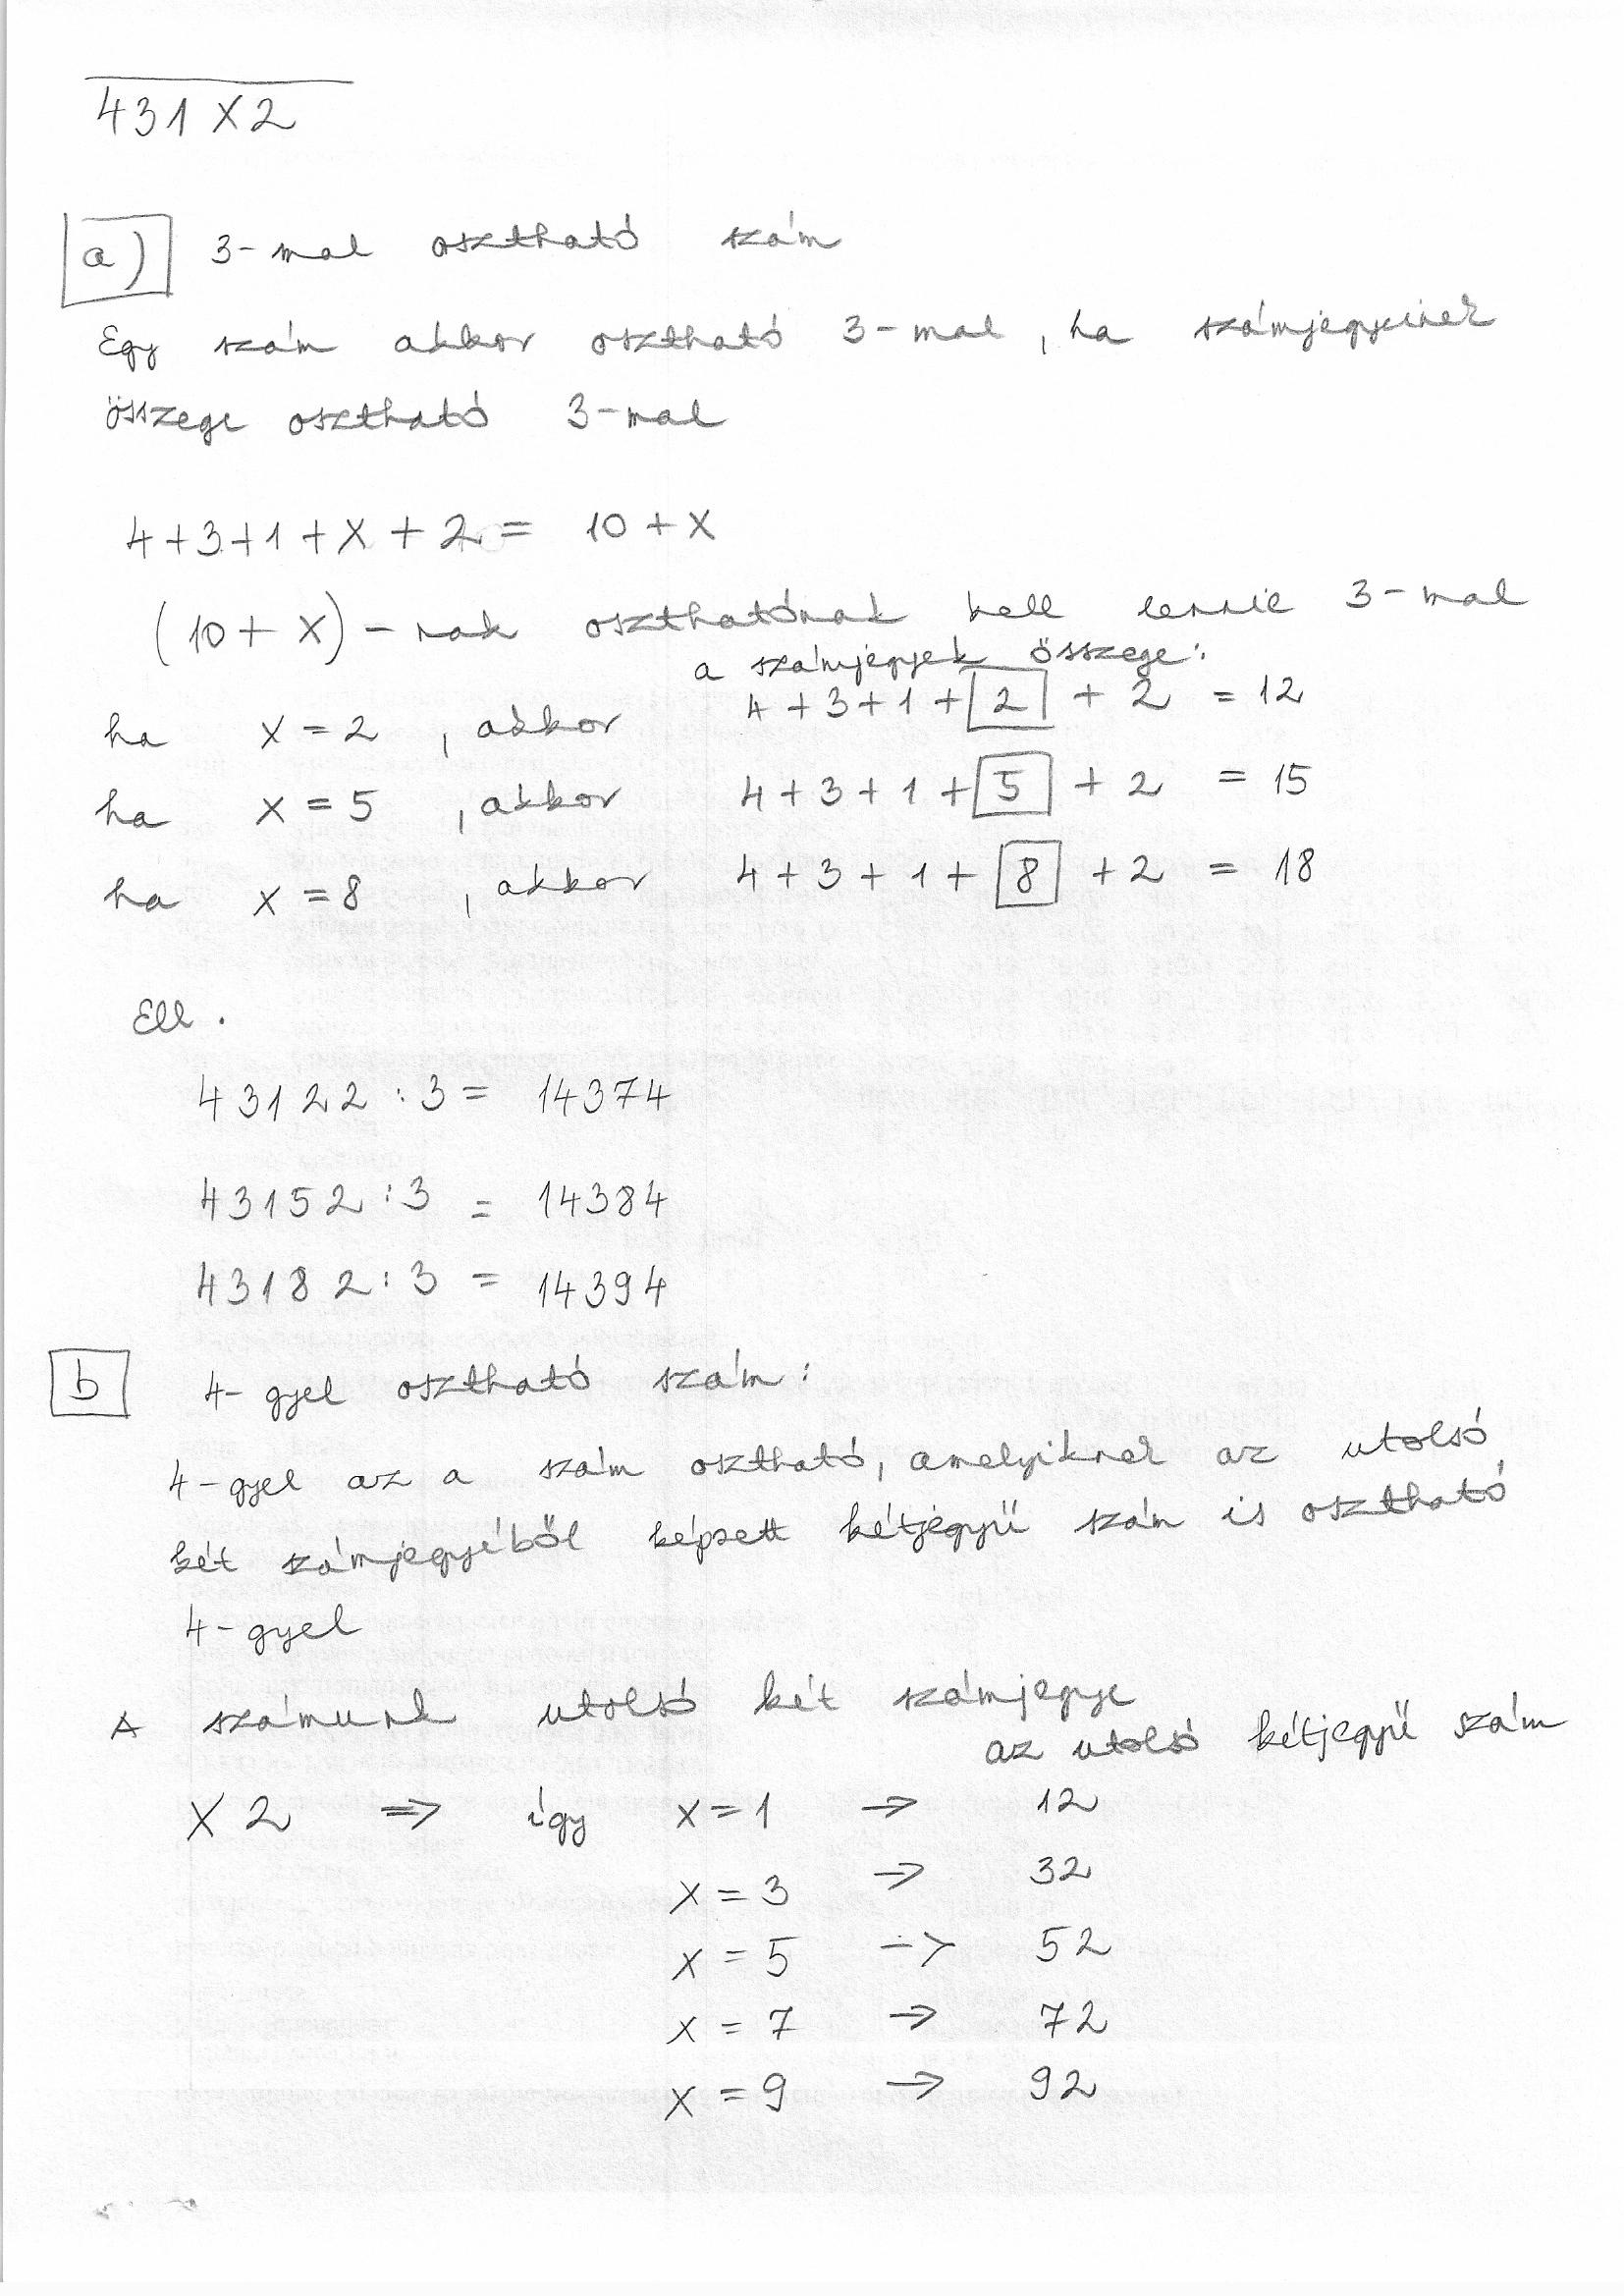 431X2
a) 3-mal osztható szám
Egy szám akkor osztható 3-mal, ha számjegyeinek
összege osztható 3-mal
4+3+1+X+2= 10+X
(10+X)-nak oszthatónak kell lennie 3-mal
a számjegyek összege:
ha x=2, akkor 4+3+1+2+2=12
ha x=5, akkor 4+3+1+5+2=15
ha x=8, akkor 4+3+1+8+2=18
Ell.
43122:3= 14374
43152:3 = 14384
43182:3 = 14394
b 4-gyel osztható szám:
4-gyel az a szám osztható, amelyiknek az utolsó
két számjegyéből képzett kétjegyű szám is osztható
4-gyel
A számunk utolsó két számjegye
az utolsó kétjegyű szám
X2 => így x=1 -> 12
x=3 -> 32
x=5 -> 52
x=7 -> 72
x=9 -> 92